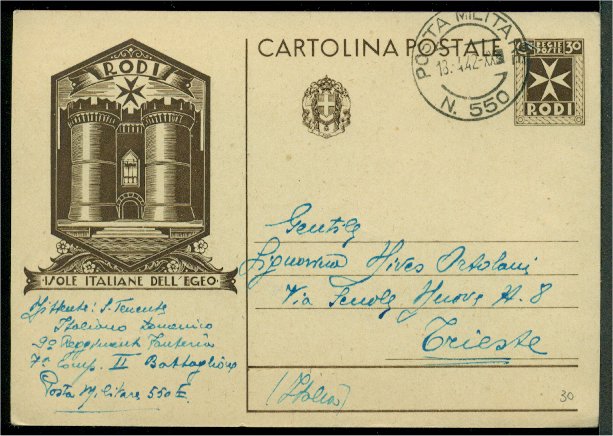 CARTOLINA POSTALE
POSTA MILITARE
N. 550
REGIE POSTE 30
RODI
RODI
ISOLE ITALIANE DELL'EGEO
Gentile
Signorina Hives Ortolani
Via Scuole Nuove N. 8
Trieste
(Italia)
Mittente: S. Tenente
Italiano Domenico
9º Reggimento Fanteria
7ª Comp. II Battaglione
Posta Militare 550 E.
30